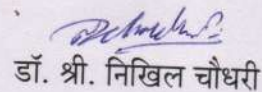 डॉ. श्री. निखिल चौधरी